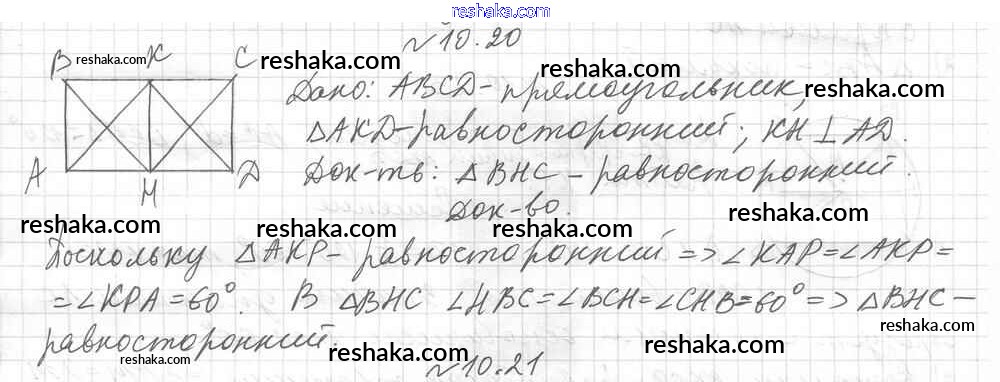 reshaka.com
№10.20
B reshaka.com K C reshaka.com reshaka.com
Дано: ABCD-прямоугольник, reshaka.com
△AKD-равносторонний; KH⊥AD.
A H D reshaka.com Док-ть: △BHC-равносторонний.
reshaka.com reshaka.com Док-во. reshaka.com
Поскольку △AKP-равносторонний => ∠KAP=∠AKP=
=∠KPA=60°. В △BHC ∠HBC=∠BCH=∠CHB=60° => △BHC-
равносторонний.
reshaka.com reshaka.com reshaka.com reshaka.com
№10.21